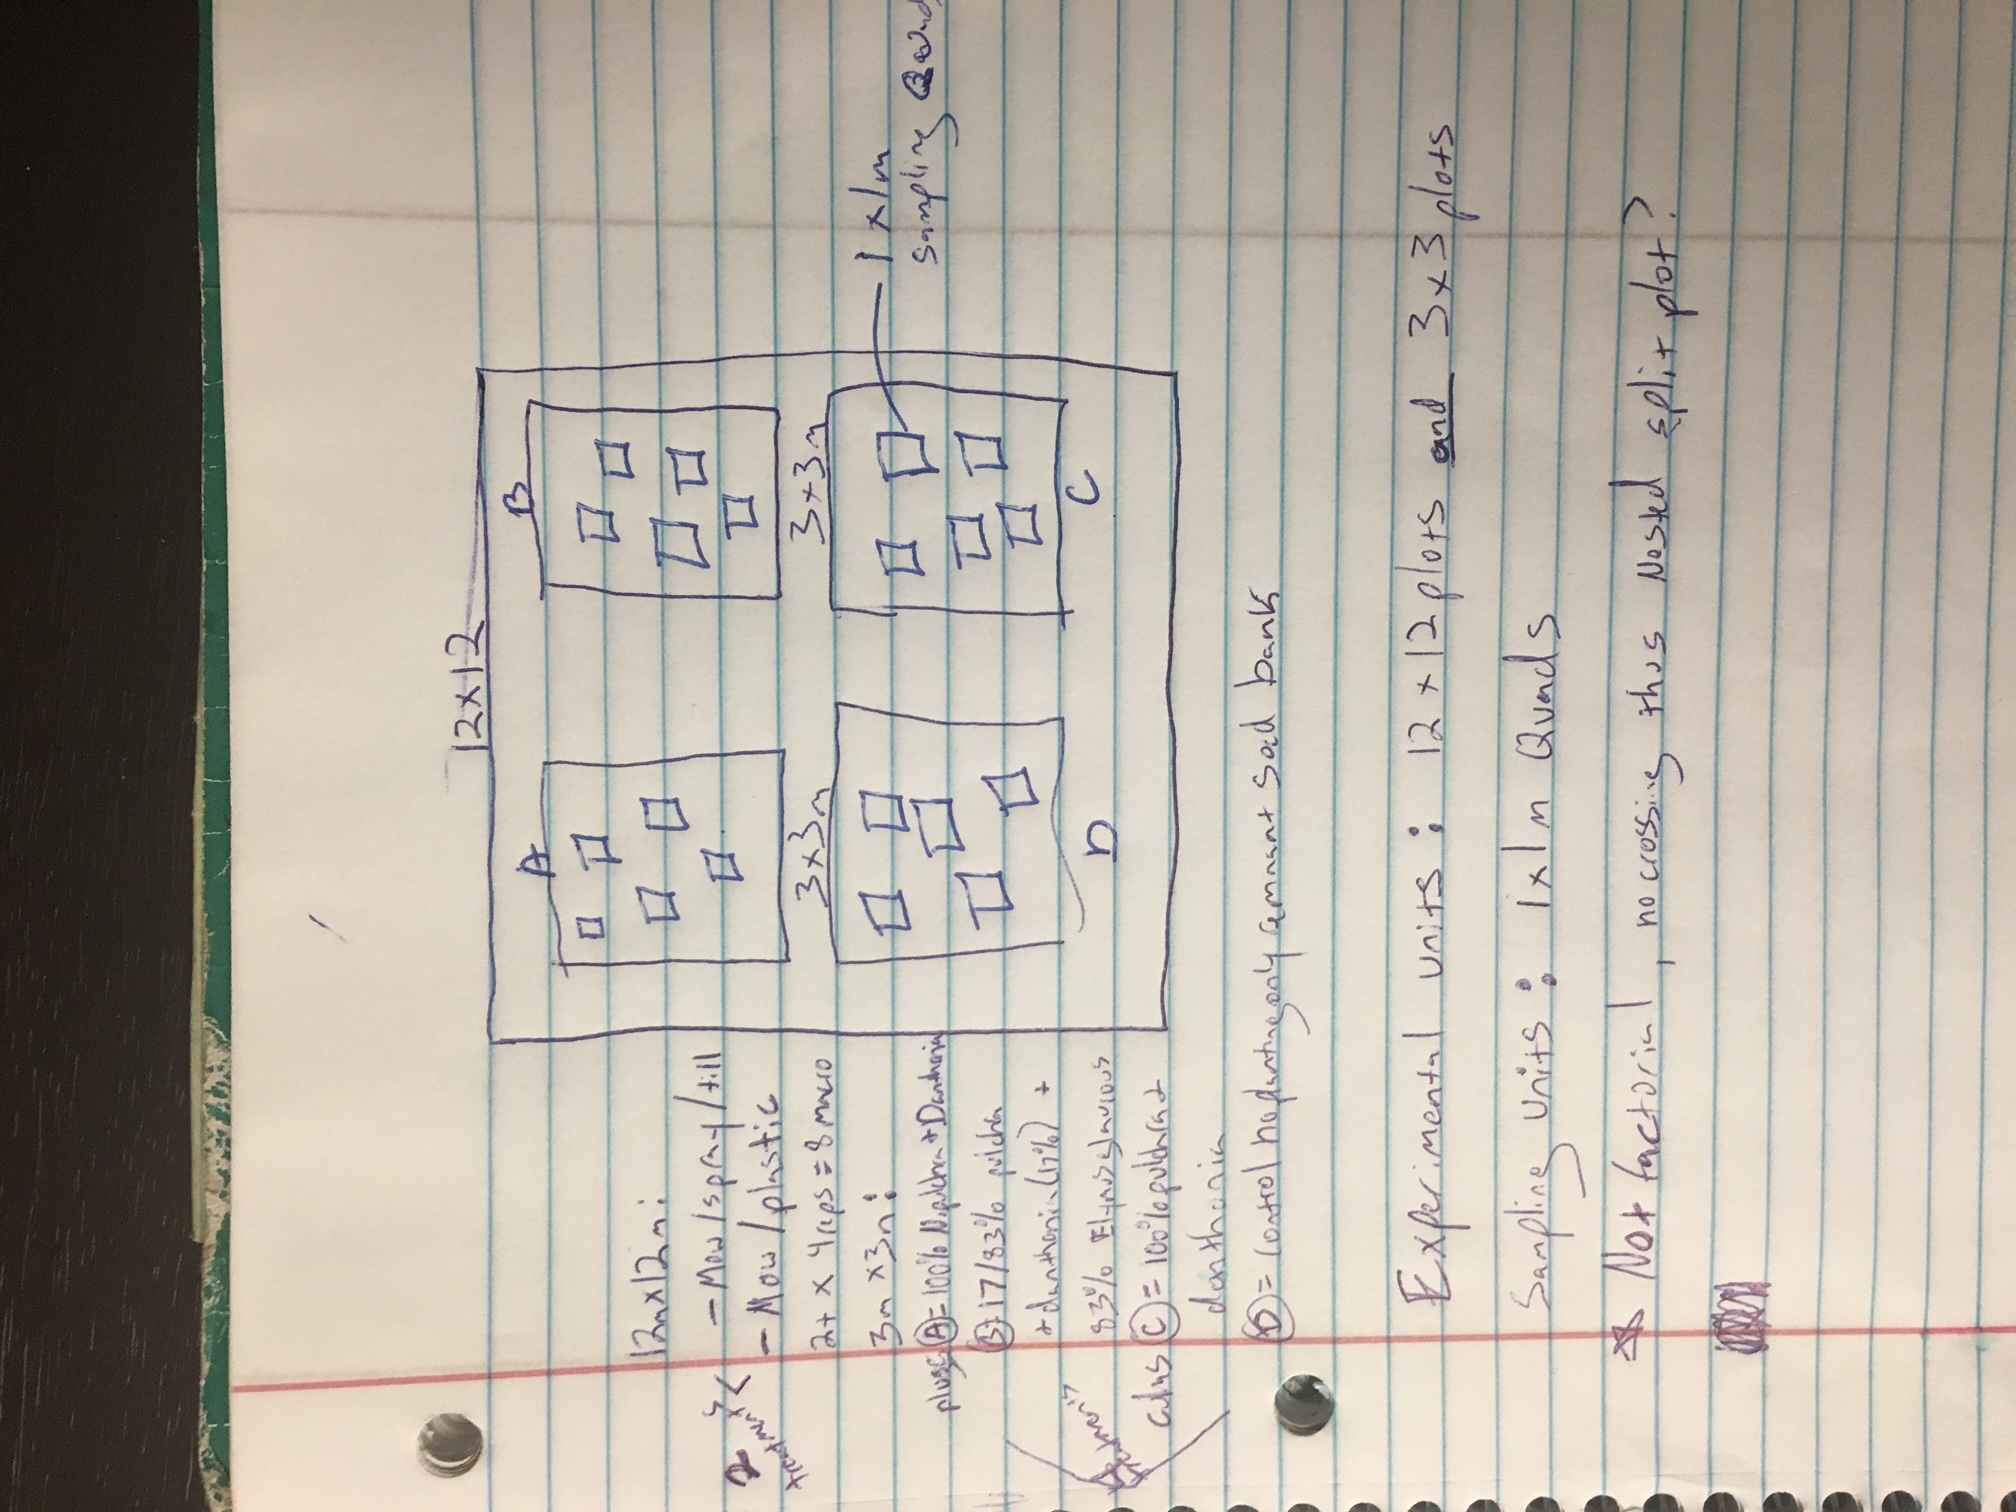 12x12
A
B
3x3m
3x3m
D
C
1x1m
sampling Quad
12mx12m:
- Mow/spray/till
- Mow/plastic
2 treatments
2t x 4reps = 8 macro
3m x3m:
plugs A = 100% N.pulchra + Danthonia
B = 17/83% pulchra
+ danthonia (17%) +
83% Elymus glaucous
4 treatments
C = 100% pulchra +
danthonia
D = control no planting only remnant seed bank
Experimental units: 12x12 plots and 3x3 plots
Sampling units: 1x1m Quads
Not factorial, no crossing thus Nested split plot?